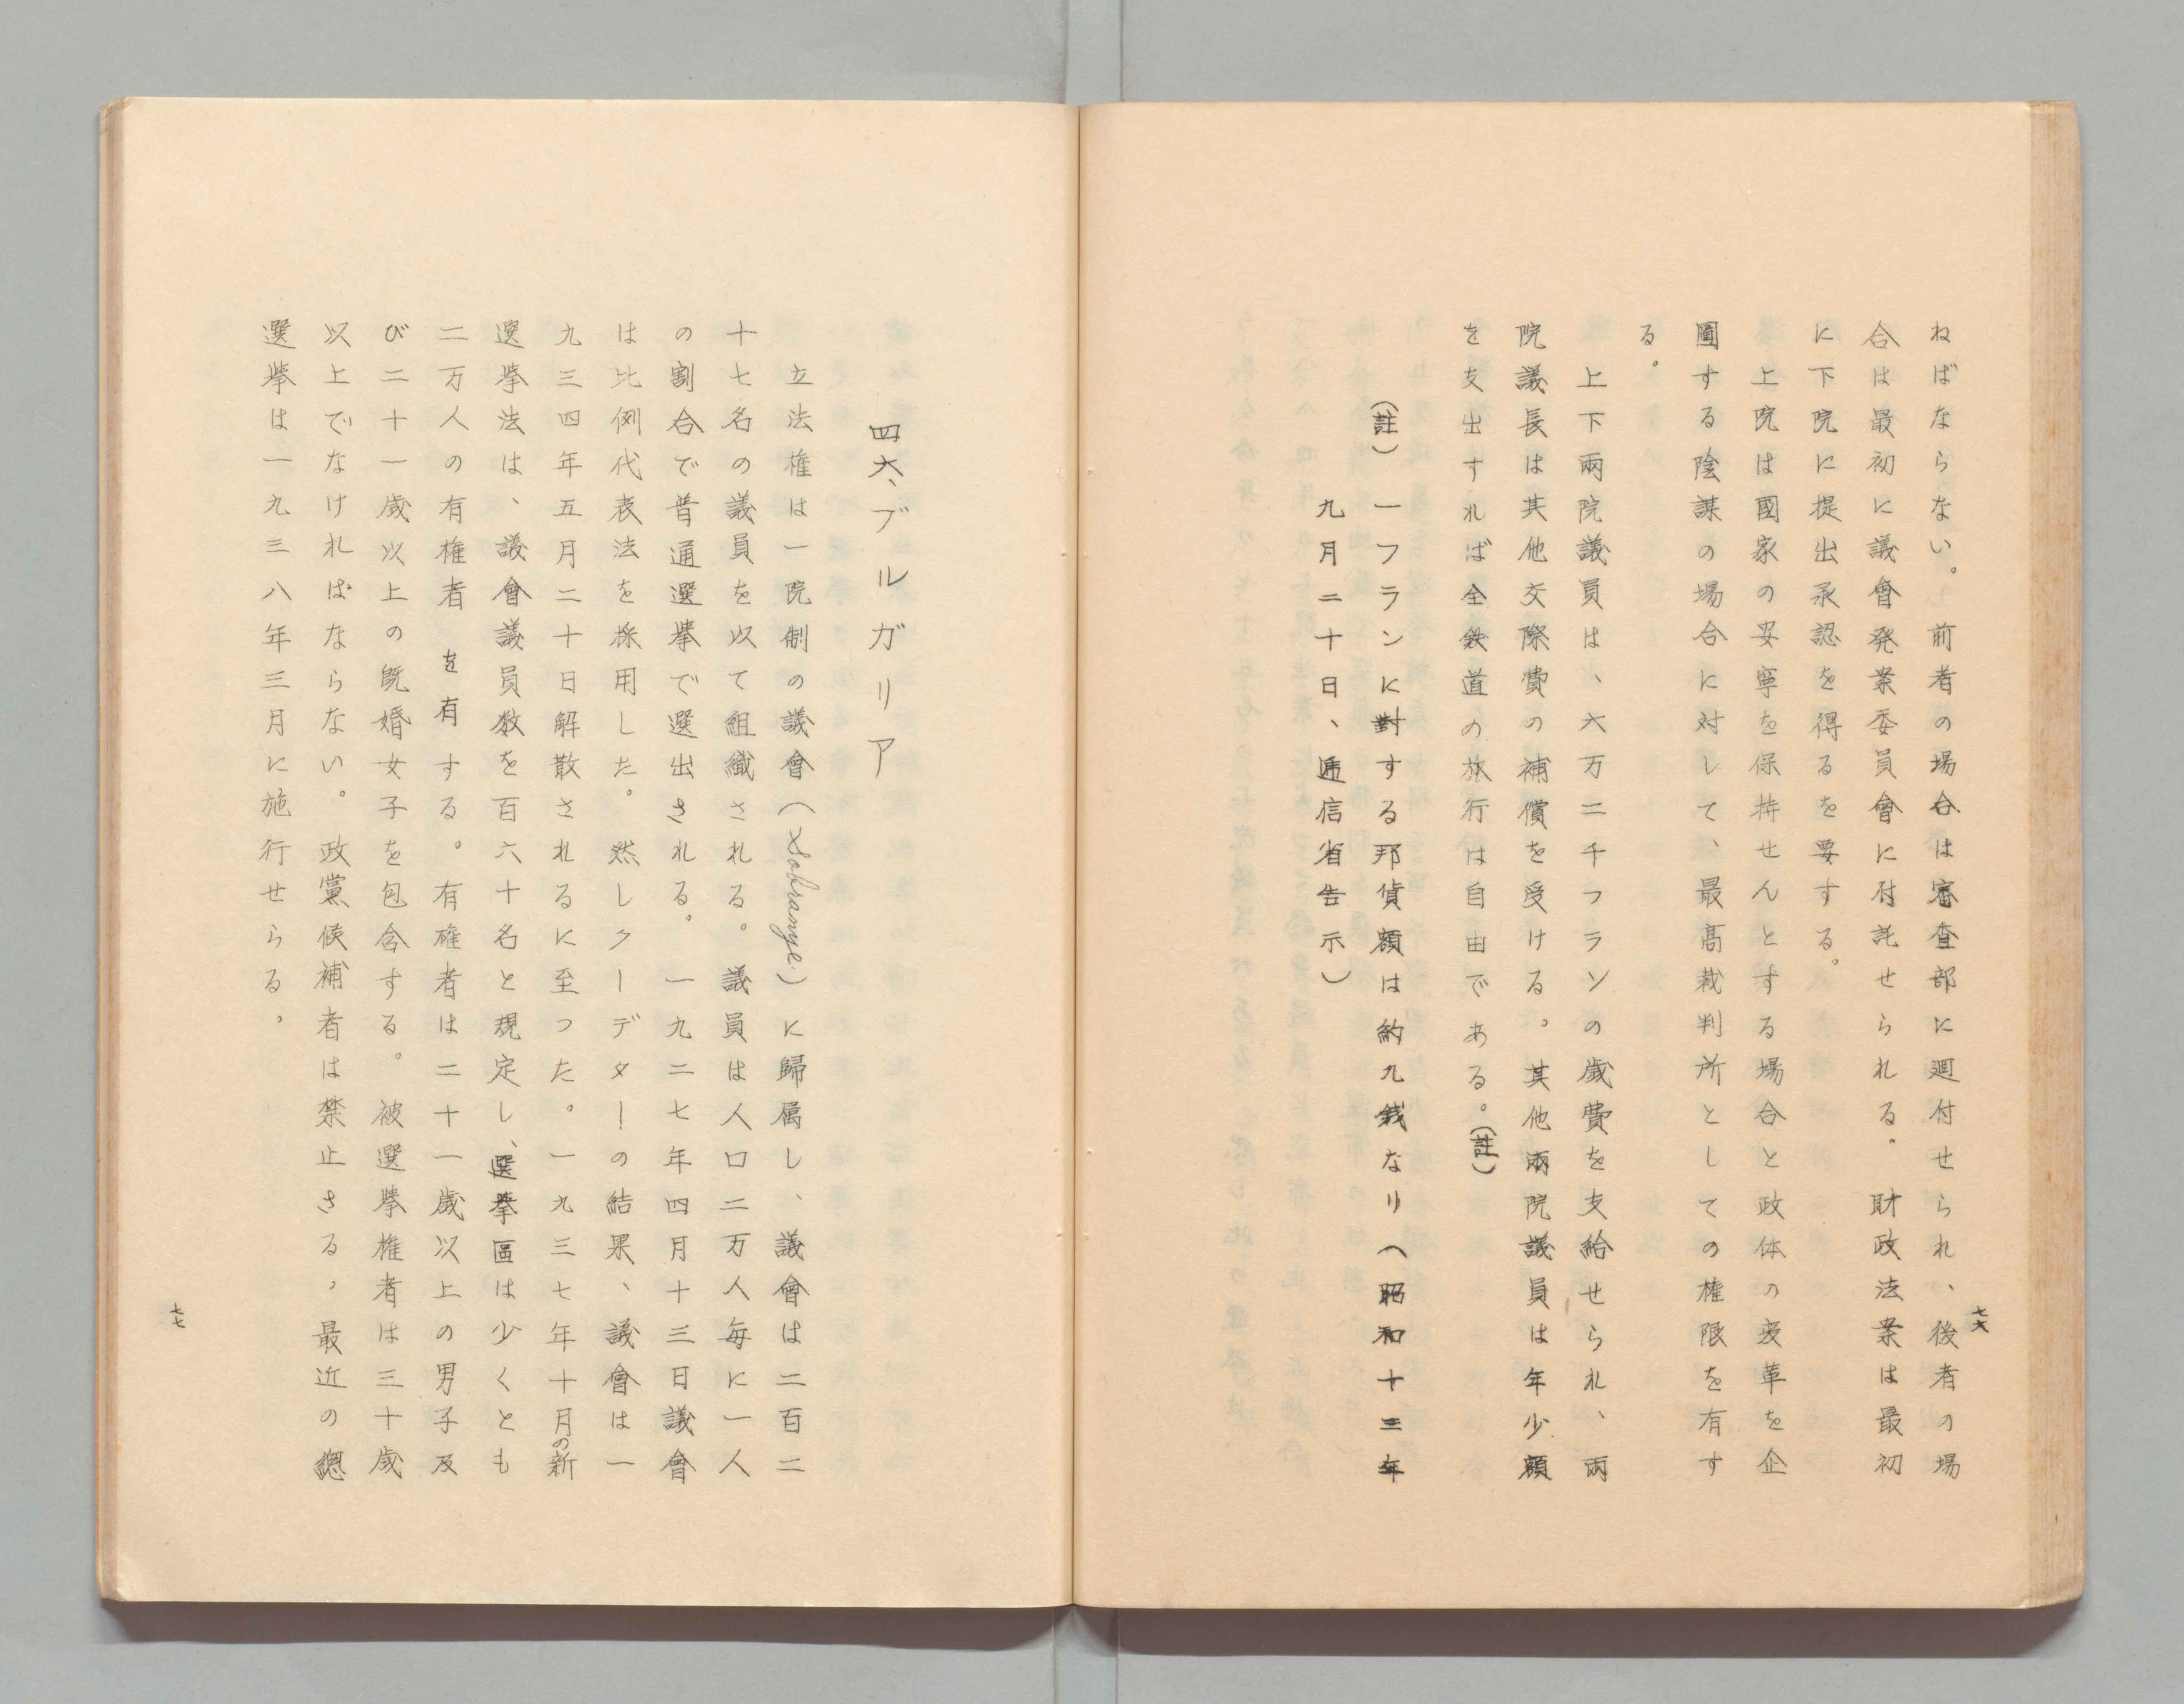 七六
ねばならない。前者の場合は審査部に廻付せられ、後者の場
合は最初に議會発案委員會に付託せられる。財政法案は最初
に下院に提出承認を得るを要する。
上院は國家の安寧を保持せんとする場合と政体の変革を企
圖する陰謀の場合に対して、最高裁判所としての権限を有す
る。
上下兩院議員は、六万二千フランの歳費を支給せられ、兩
院議長は其他交際費の補償を受ける。其他兩院議員は年少額
を支出すれば全鉄道の旅行は自由である。(註)
(註) 一フランに對する邦貨額は約九銭なり(昭和十三年
九月二十日、逓信省告示)
四六、ブルガリア
立法権は一院制の議會(Sobranye)に歸属し、議會は二百二
十七名の議員を以て組織される。議員は人口二万人毎に一人
の割合で普通選挙で選出される。一九二七年四月十三日議會
は比例代表法を採用した。然しクーデターの結果、議會は一
九三四年五月二十日解散されるに至つた。一九三七年十月の新
選挙法は、議會議員数を百六十名と規定し、選挙區は少くとも
二万人の有権者を有する。有権者は二十一歳以上の男子及
び二十一歳以上の既婚女子を包含する。被選挙権者は三十歳
以上でなければならない。政黨候補者は禁止さる、最近の總
選挙は一九三八年三月に施行せらる。
七七